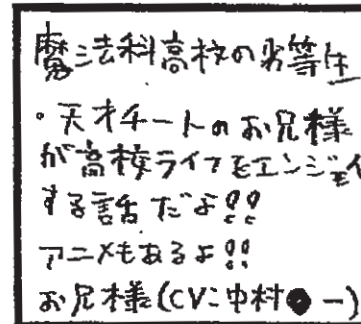 魔法科高校の劣等生
・天才チートのお兄様
が高校ライフをエンジョイ
する話だよ!!
アニメもあるよ!!
お兄様(CV:中村●一)